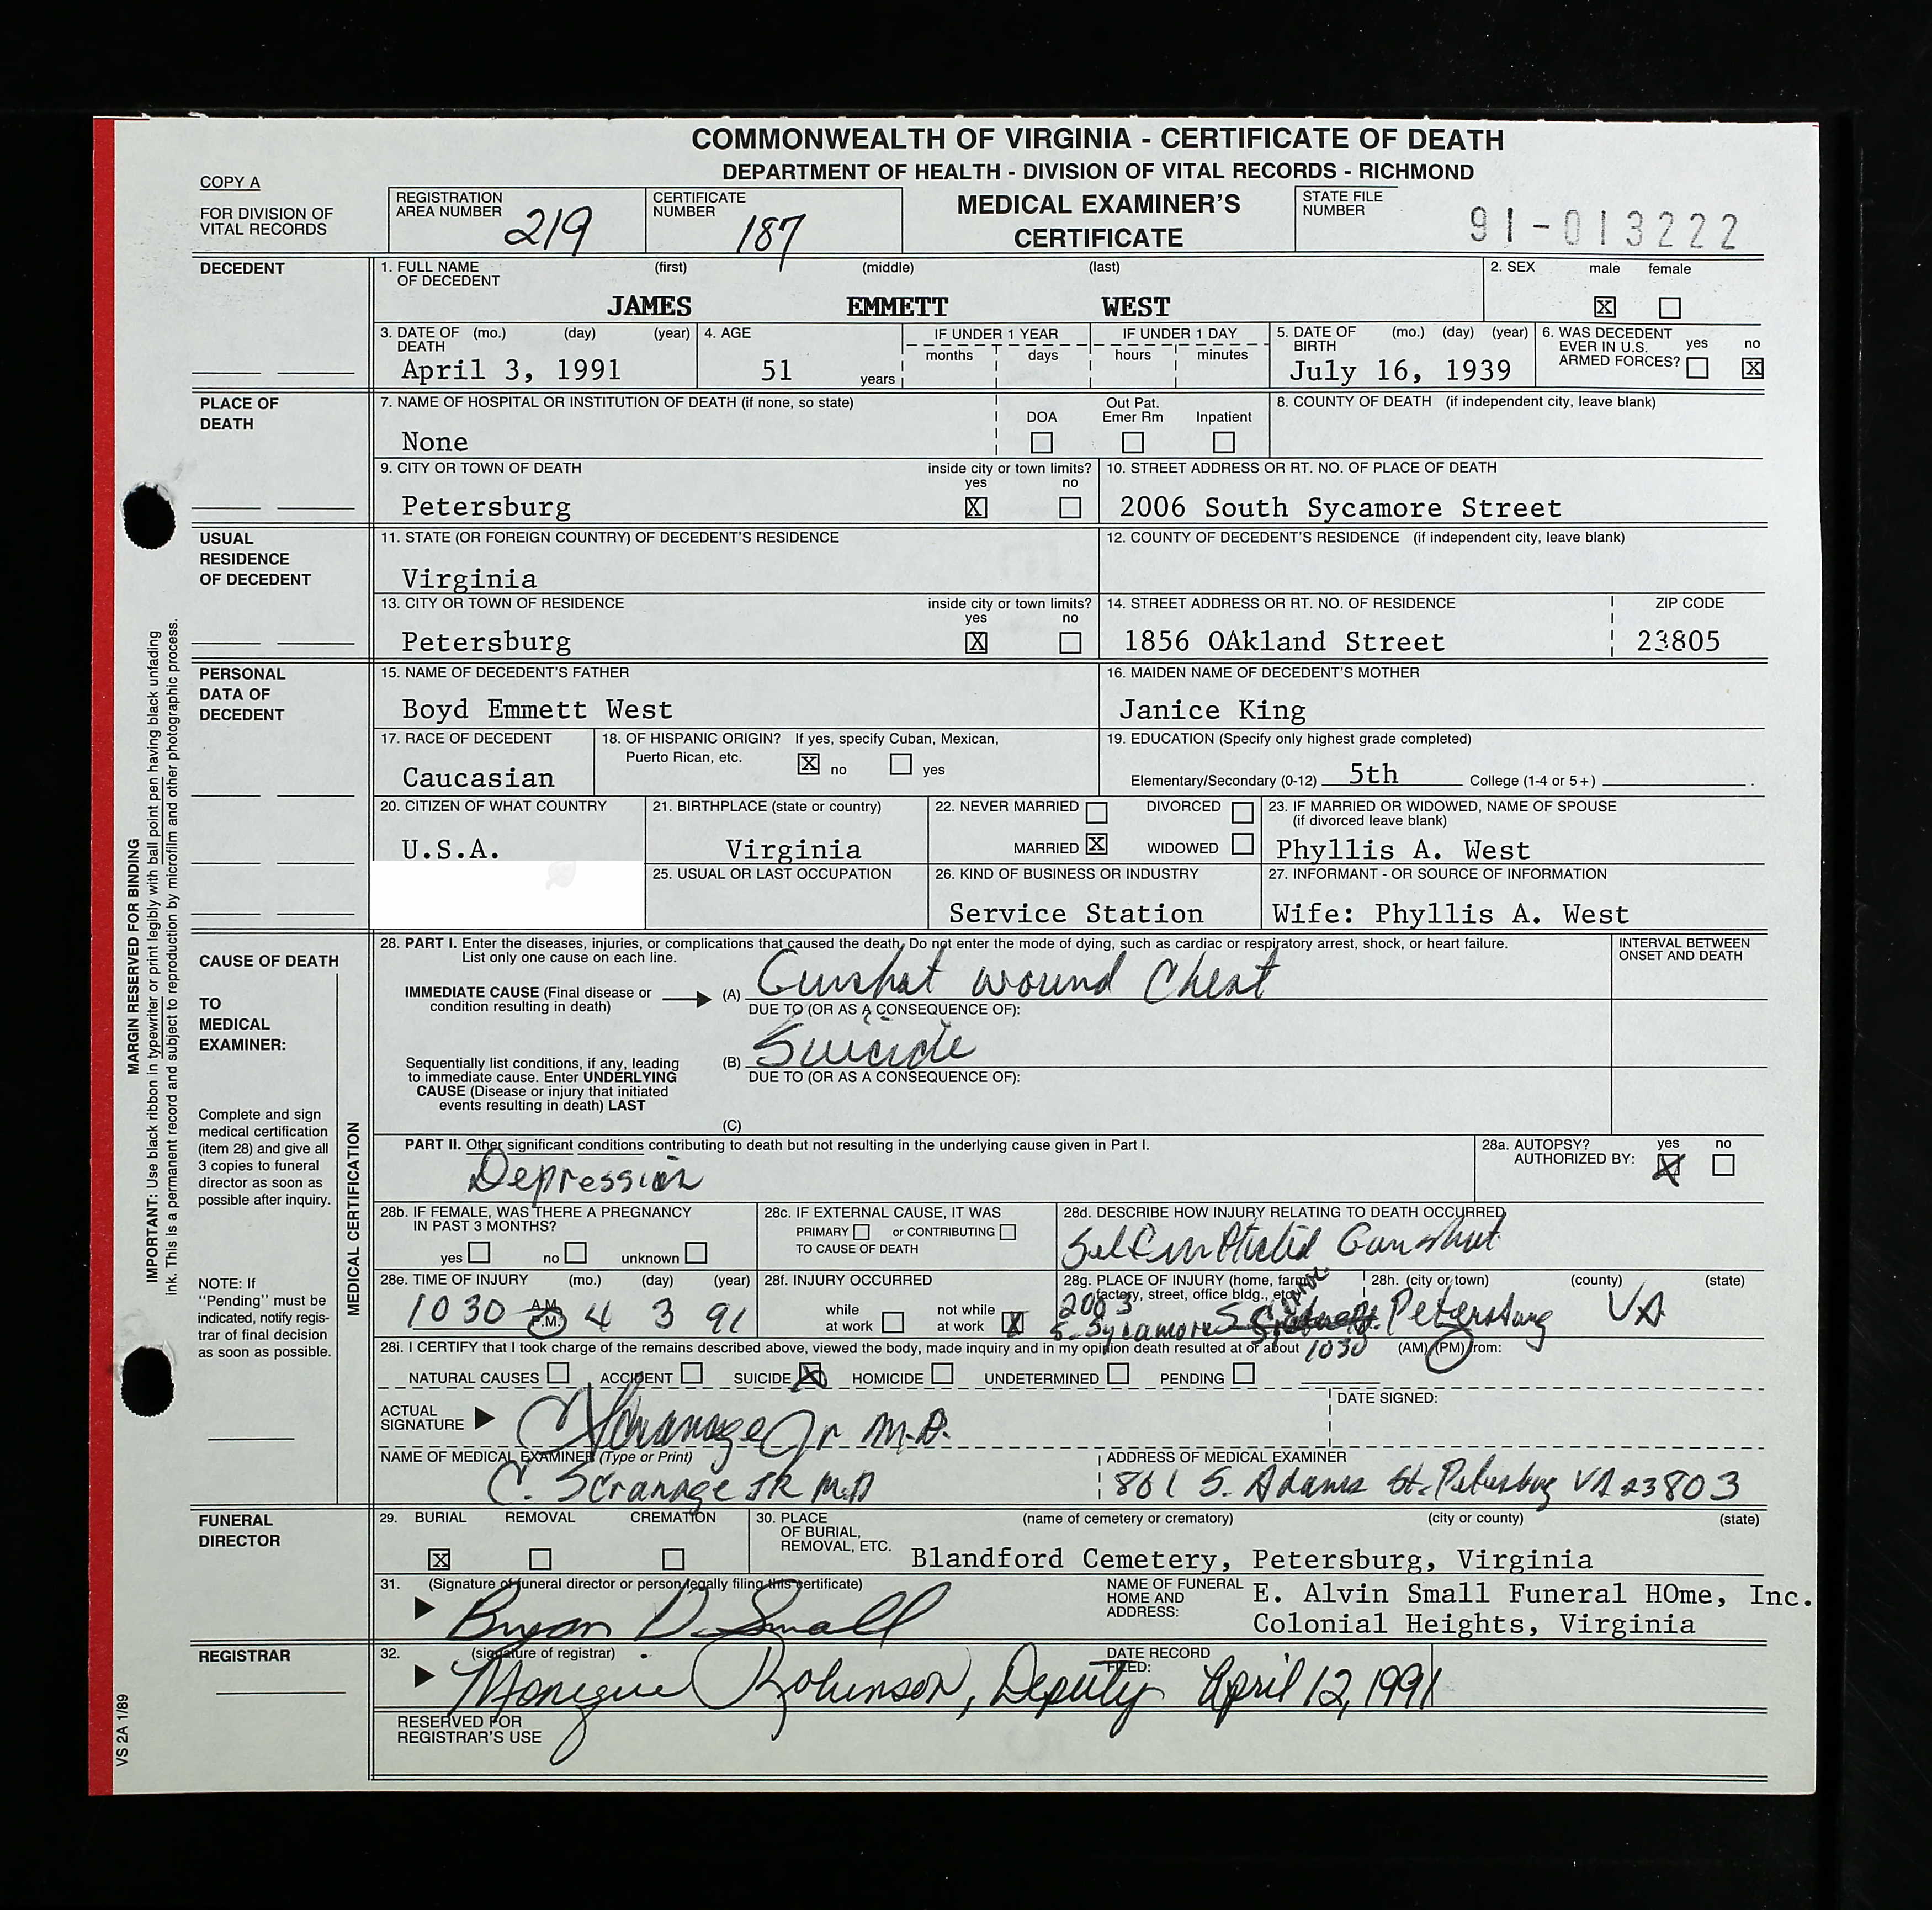 COMMONWEALTH OF VIRGINIA - CERTIFICATE OF DEATH
DEPARTMENT OF HEALTH - DIVISION OF VITAL RECORDS - RICHMOND
COPY A
FOR DIVISION OF VITAL RECORDS
REGISTRATION AREA NUMBER 219
CERTIFICATE NUMBER 187
MEDICAL EXAMINER'S CERTIFICATE
STATE FILE NUMBER 91-013222
DECEDENT
1. FULL NAME OF DECEDENT (first) (middle) (last)
JAMES EMMETT WEST
2. SEX male female
X
3. DATE OF DEATH (mo.) (day) (year)
April 3, 1991
4. AGE
51 years
IF UNDER 1 YEAR
months days
IF UNDER 1 DAY
hours minutes
5. DATE OF BIRTH (mo.) (day) (year)
July 16, 1939
6. WAS DECEDENT EVER IN U.S. ARMED FORCES? yes no
X
PLACE OF DEATH
7. NAME OF HOSPITAL OR INSTITUTION OF DEATH (if none, so state)
None
DOA Out Pat. Emer Rm Inpatient
8. COUNTY OF DEATH (if independent city, leave blank)
9. CITY OR TOWN OF DEATH
Petersburg
inside city or town limits?
yes no
X
10. STREET ADDRESS OR RT. NO. OF PLACE OF DEATH
2006 South Sycamore Street
USUAL RESIDENCE OF DECEDENT
11. STATE (OR FOREIGN COUNTRY) OF DECEDENT'S RESIDENCE
Virginia
12. COUNTY OF DECEDENT'S RESIDENCE (if independent city, leave blank)
13. CITY OR TOWN OF RESIDENCE
Petersburg
inside city or town limits?
yes no
X
14. STREET ADDRESS OR RT. NO. OF RESIDENCE
1856 OAkland Street
ZIP CODE
23805
PERSONAL DATA OF DECEDENT
15. NAME OF DECEDENT'S FATHER
Boyd Emmett West
16. MAIDEN NAME OF DECEDENT'S MOTHER
Janice King
17. RACE OF DECEDENT
Caucasian
18. OF HISPANIC ORIGIN? If yes, specify Cuban, Mexican, Puerto Rican, etc.
X no yes
19. EDUCATION (Specify only highest grade completed)
Elementary/Secondary (0-12) 5th College (1-4 or 5+)
20. CITIZEN OF WHAT COUNTRY
U.S.A.
21. BIRTHPLACE (state or country)
Virginia
22. NEVER MARRIED DIVORCED
MARRIED X WIDOWED
23. IF MARRIED OR WIDOWED, NAME OF SPOUSE
(if divorced leave blank)
Phyllis A. West
25. USUAL OR LAST OCCUPATION
26. KIND OF BUSINESS OR INDUSTRY
Service Station
27. INFORMANT - OR SOURCE OF INFORMATION
Wife: Phyllis A. West
CAUSE OF DEATH
TO MEDICAL EXAMINER:
Complete and sign medical certification (item 28) and give all 3 copies to funeral director as soon as possible after inquiry.
NOTE: If "Pending" must be indicated, notify registrar of final decision as soon as possible.
MEDICAL CERTIFICATION
28. PART I. Enter the diseases, injuries, or complications that caused the death. Do not enter the mode of dying, such as cardiac or respiratory arrest, shock, or heart failure.
List only one cause on each line.
INTERVAL BETWEEN ONSET AND DEATH
IMMEDIATE CAUSE (Final disease or condition resulting in death)
(A) Gunshot wound Chest
DUE TO (OR AS A CONSEQUENCE OF):
Sequentially list conditions, if any, leading to immediate cause. Enter UNDERLYING CAUSE (Disease or injury that initiated events resulting in death) LAST
(B) Suicide
DUE TO (OR AS A CONSEQUENCE OF):
(C)
PART II. Other significant conditions contributing to death but not resulting in the underlying cause given in Part I.
Depression
28a. AUTOPSY? yes no
AUTHORIZED BY: X
28b. IF FEMALE, WAS THERE A PREGNANCY IN PAST 3 MONTHS?
yes no unknown
28c. IF EXTERNAL CAUSE, IT WAS
PRIMARY or CONTRIBUTING
TO CAUSE OF DEATH
28d. DESCRIBE HOW INJURY RELATING TO DEATH OCCURRED
Self inflicted Gunshot
28e. TIME OF INJURY (mo.) (day) (year)
1030 A.M. P.M. 4 3 91
28f. INJURY OCCURRED
while at work not while at work X
28g. PLACE OF INJURY (home, farm, factory, street, office bldg., etc.)
2003
S. Sycamore
28h. (city or town) (county) (state)
Petersburg VA
28i. I CERTIFY that I took charge of the remains described above, viewed the body, made inquiry and in my opinion death resulted at or about 1030 (AM) (PM) from:
NATURAL CAUSES ACCIDENT SUICIDE X HOMICIDE UNDETERMINED PENDING
ACTUAL SIGNATURE C Scranage Jr M.D.
DATE SIGNED:
NAME OF MEDICAL EXAMINER (Type or Print)
C. Scranage JR M.D
ADDRESS OF MEDICAL EXAMINER
801 S. Adams St. Petersburg VA 23803
FUNERAL DIRECTOR
29. BURIAL REMOVAL CREMATION
X
30. PLACE OF BURIAL, REMOVAL, ETC. (name of cemetery or crematory) (city or county) (state)
Blandford Cemetery, Petersburg, Virginia
31. (Signature of funeral director or person legally filing this certificate)
Bryan D. Small
NAME OF FUNERAL HOME AND ADDRESS:
E. Alvin Small Funeral HOme, Inc.
Colonial Heights, Virginia
REGISTRAR
32. (signature of registrar)
Monique Robinson, Deputy
DATE RECORD FILED:
April 12, 1991
RESERVED FOR REGISTRAR'S USE
MARGIN RESERVED FOR BINDING
IMPORTANT: Use black ribbon in typewriter or print legibly with ball point pen having black unfading
ink. This is a permanent record and subject to reproduction by microfilm and other photographic process.
VS 2A 1/89